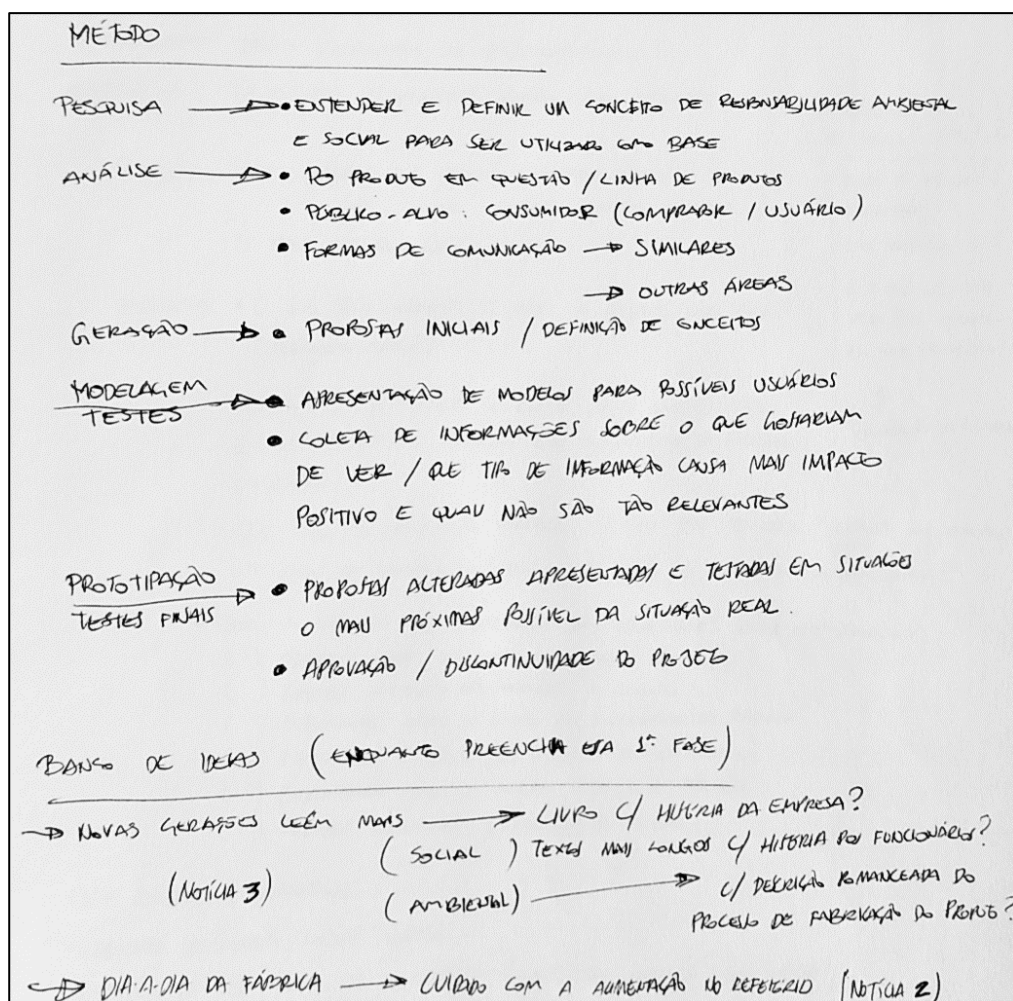 MÉTODO
PESQUISA → • ENTENDER E DEFINIR UM CONCEITO DE RESPONSABILIDADE AMBIENTAL
E SOCIAL PARA SER UTILIZADO COMO BASE
ANÁLISE → • DO PRODUTO EM QUESTÃO / LINHA DE PRODUTOS
• PÚBLICO-ALVO: CONSUMIDOR (COMPRADOR / USUÁRIO)
• FORMAS DE COMUNICAÇÃO → SIMILARES
→ OUTRAS ÁREAS
GERAÇÃO → • PROPOSTAS INICIAIS / DEFINIÇÃO DE CONCEITOS
MODELAGEM
TESTES → • APRESENTAÇÃO DE MODELOS PARA POSSÍVEIS USUÁRIOS
• COLETA DE INFORMAÇÕES SOBRE O QUE GOSTARIAM
DE VER / QUE TIPO DE INFORMAÇÃO CAUSA MAIS IMPACTO
POSITIVO E QUAIS NÃO SÃO TÃO RELEVANTES
PROTOTIPAÇÃO
TESTES FINAIS → • PROPOSTAS ALTERADAS APRESENTADAS E TESTADAS EM SITUAÇÕES
O MAIS PRÓXIMAS POSSÍVEL DA SITUAÇÃO REAL.
• APROVAÇÃO / DISCONTINUIDADE DO PROJETO
BANCO DE IDEIAS (ENQUANTO PREENCHIA ESSA 1ª FASE)
→ NOVAS GERAÇÕES LEÊM MAIS → LIVRO C/ HISTÓRIA DA EMPRESA?
(SOCIAL) TEXTOS MAIS LONGOS C/ HISTÓRIA DOS FUNCIONÁRIOS?
(NOTÍCIA 3) (AMBIENTAL) → C/ DESCRIÇÃO ROMANCEADA DO
PROCESSO DE FABRICAÇÃO DO PRODUTO?
→ DIA-A-DIA DA FÁBRICA → CUIDADO COM A ALIMENTAÇÃO NO REFEITÓRIO (NOTÍCIA 2)